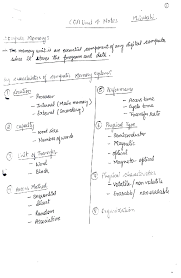 Computer Memory:
→ The memory unit is an essential component of any digital computer
since it stores the program and data.
Characteristics of Computer Memory Systems:
① Location
→ Processor
→ Internal (Main memory)
→ External (Secondary)
② Capacity
→ Word size
→ Number of words
③ Unit of Transfer
→ Word
→ Block
④ Access Method
→ Sequential
→ Direct
→ Random
→ Associative
⑤ Performance
→ Access time
→ Cycle time
→ Transfer rate
⑥ Physical Type
→ Semiconductor
→ Magnetic
→ Optical
→ Magneto-optical
⑦ Physical Characteristics
→ Volatile / non volatile
→ Erasable / nonerasable
⑧ Organisation